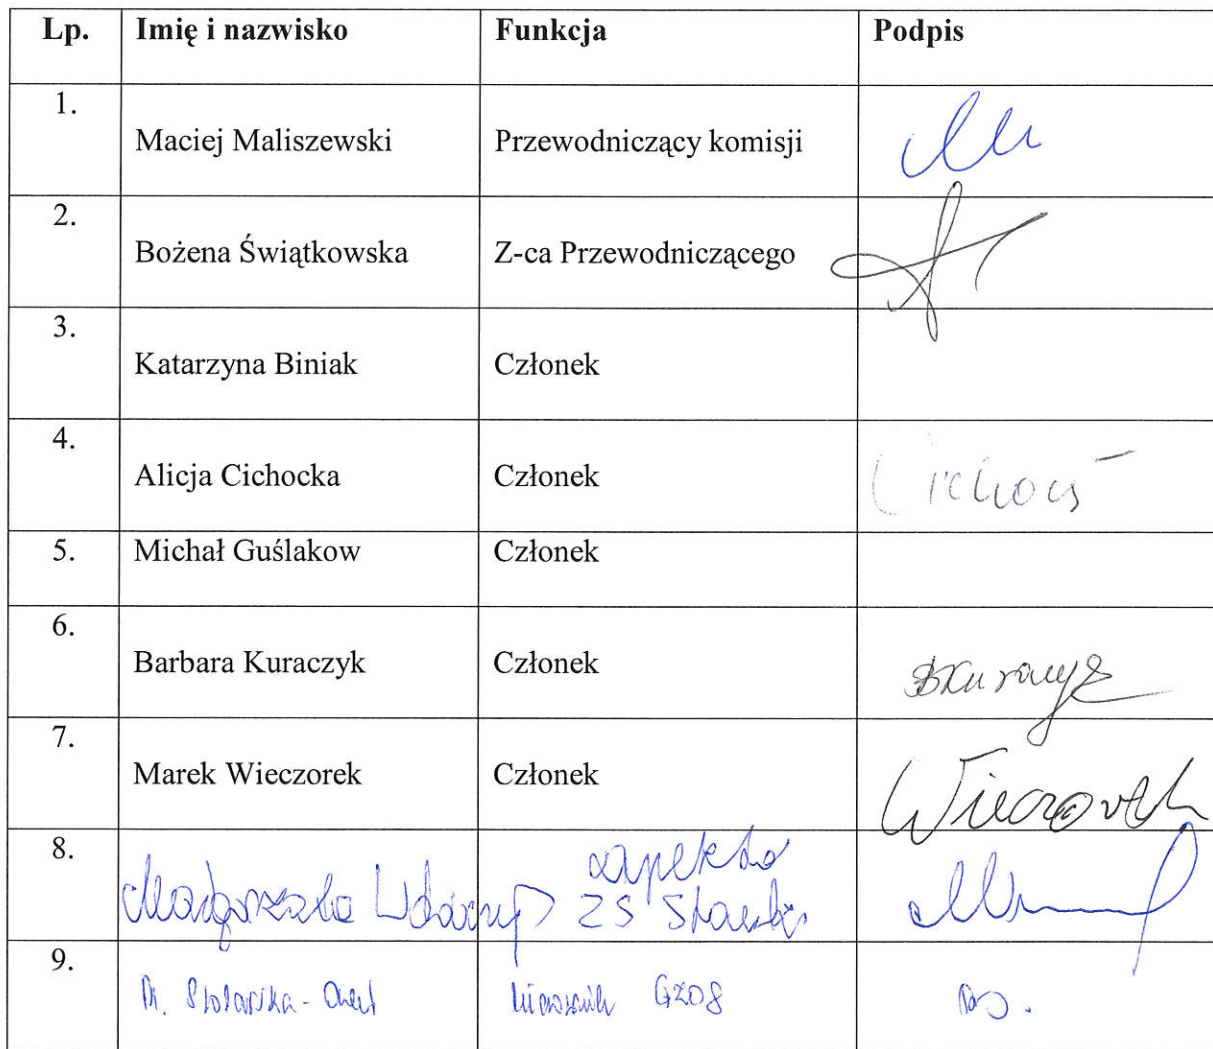 Lp. Imię i nazwisko Funkcja Podpis
1. Maciej Maliszewski Przewodniczący komisji
2. Bożena Świątkowska Z-ca Przewodniczącego
3. Katarzyna Biniak Członek
4. Alicja Cichocka Członek
5. Michał Guślakow Członek
6. Barbara Kuraczyk Członek
7. Marek Wieczorek Członek Wieczorek
8. Małgorzata ZS
9. M. Stolarska-